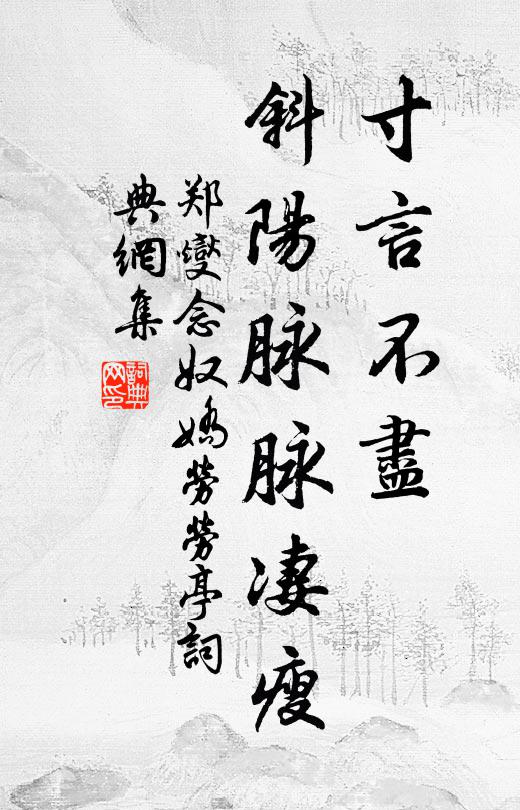 寸言不盡
斜陽脉脉凄瘦
郑燮念奴嬌勞勞亭詞
典網集
詞典网印